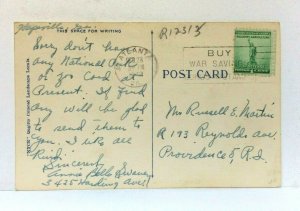 Hapeville Ga.
THIS SPACE FOR WRITING
Sorry don't have
any National Park
or Zoo Card at
Present. If find
any will be glad
to send them to
you. I like all
Kind.
Sincerely
Annie Belle Swan
3425 Harding Ave.
R12313
ATLANTA
BUY
WAR SAVINGS
POST CARD
Mrs Russell E. Martin
R 173 Reynolds ave
Providence 5, R.I.